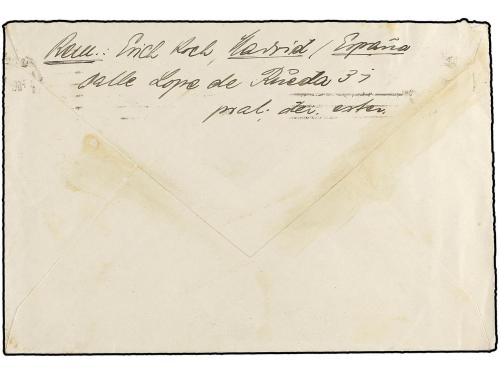 Rem.: Erich Koch, Madrid / España
calle Lope de Rueda 35
pral. der. exter.